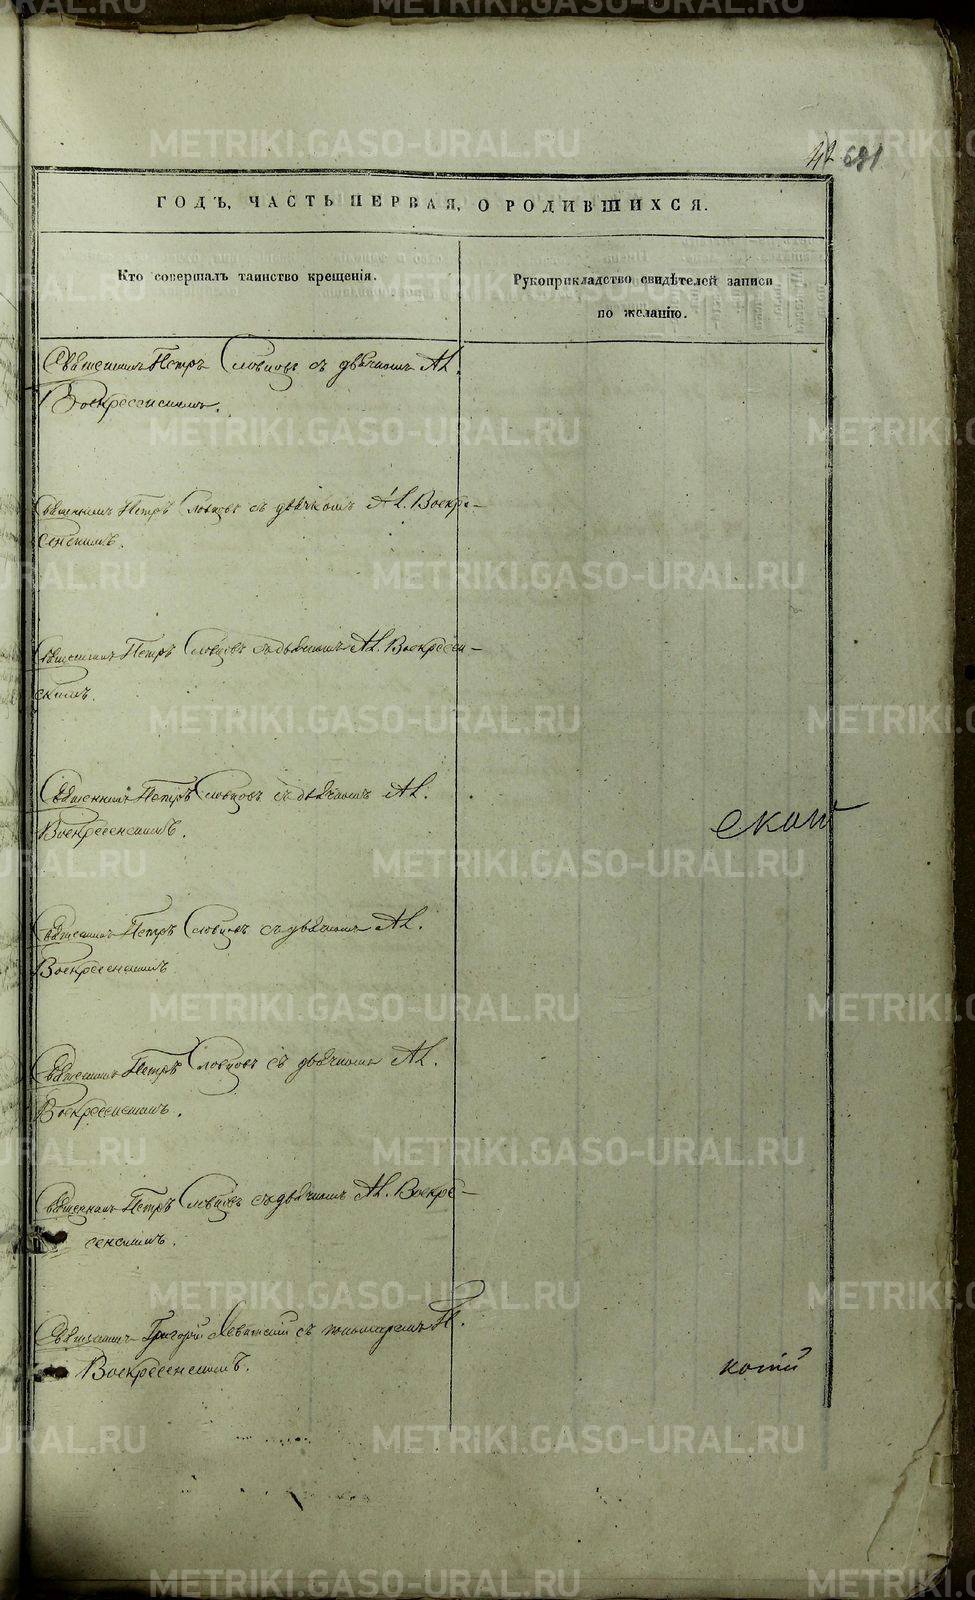 42 691
ГОДЪ, ЧАСТЬ ПЕРВАЯ, О РОДИВШИХСЯ.
Кто совершалъ таинство крещенія.
Рукоприкладство свидѣтелей записи
по желанію.
Священникъ Петръ Словцовъ съ дьячкомъ Ал.
Воскресенскимъ.
Священникъ Петръ Словцовъ съ дьячкомъ Ал. Воскре-
сенскимъ.
Священникъ Петръ Словцовъ съ дьячкомъ Ал. Воскресен-
скимъ.
Священникъ Петръ Словцовъ съ дьячкомъ Ал.
Воскресенскимъ.
Священникъ Петръ Словцовъ съ дьячкомъ Ал.
Воскресенскимъ
Священникъ Петръ Словцовъ съ дьячкомъ Ал.
Воскресенскимъ.
Священникъ Петръ Словцовъ съ дьячкомъ Ал. Воскре-
сенскимъ.
Священникъ Григорій Левитскій съ пономаремъ Н.
Воскресенскимъ.
METRIKI.GASO-URAL.RU